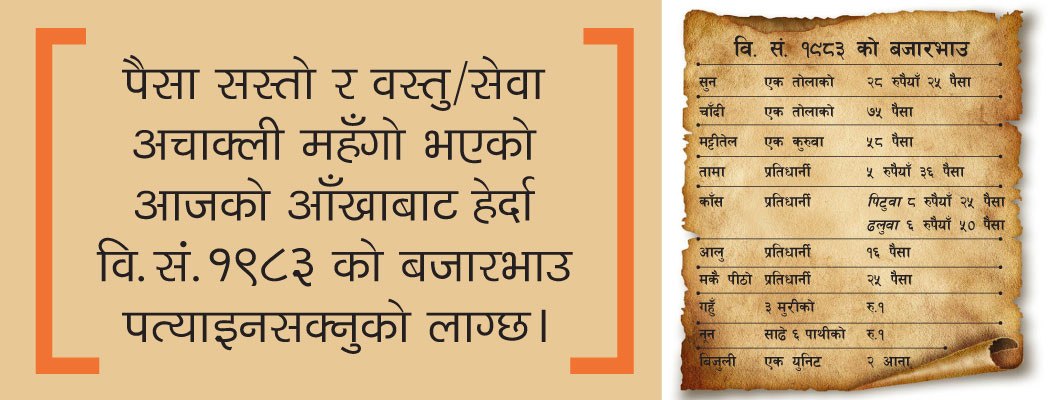 पैसा सस्तो र वस्तु/सेवा
अचाक्ली महँगो भएको
आजको आँखाबाट हेर्दा
वि. सं. १९८३ को बजारभाउ
पत्याइनसक्नुको लाग्छ।
वि. सं. १९८३ को बजारभाउ
सुन एक तोलाको २८ रुपैयाँ २५ पैसा
चाँदी एक तोलाको ७५ पैसा
मट्टीतेल एक कुरुवा ५८ पैसा
तामा प्रतिधार्नी ५ रुपैयाँ ३६ पैसा
काँस प्रतिधार्नी पिटुवा ८ रुपैयाँ २५ पैसा
ढलुवा ६ रुपैयाँ ५० पैसा
आलु प्रतिधार्नी १६ पैसा
मकै पीठो प्रतिधार्नी २५ पैसा
गहुँ ३ मुरीको रु.१
नुन साढे ६ पाथीको रु.१
बिजुली एक युनिट २ आना